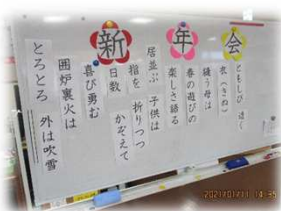 新年会
ともしび 近く
衣(きぬ)
縫う母は
春の遊びの
楽しさ語る
居並ぶ 子供は
指を 折りつつ
日数 かぞえて
喜び勇む
囲炉裏火は
とろとろ 外は吹雪
2021/01/11 14:35